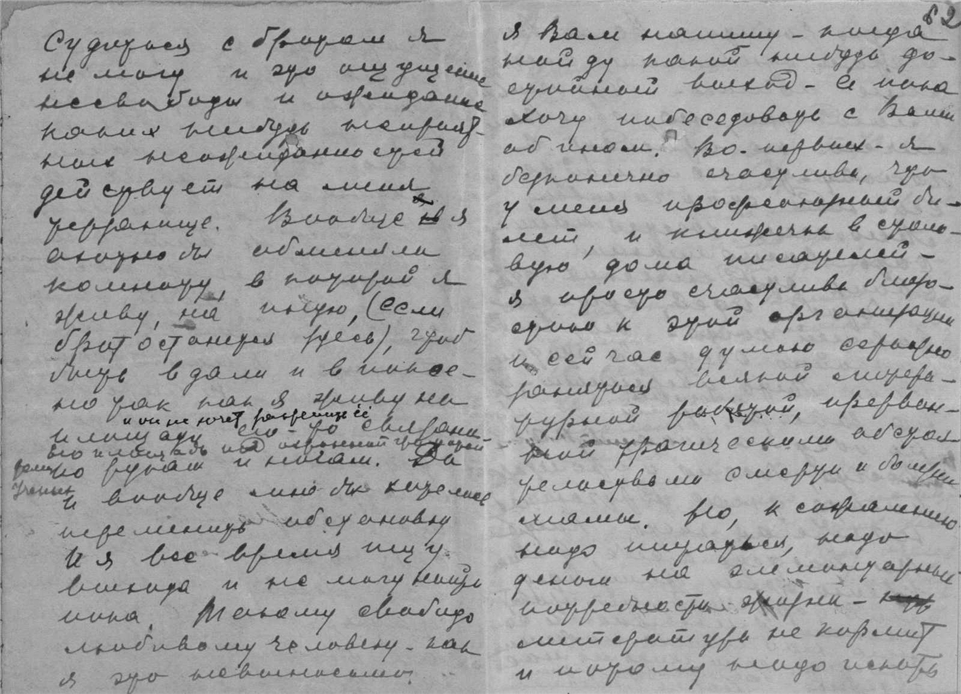 Судиться с братом я
не могу и это ощущение
несвободы и ожидание
каких нибудь неприят-
ных неожиданностей
действует на меня
угнетающе. Вообще я
охотно бы обменяла
комнату, в которой я
живу, на иную, (если
брат останется здесь), чтоб
быть вдали и в покое-
но так как я живу на
и он не хочет разделить её
площади его то связана
его площадь под охранной грамотой
по рукам и ногам. Да
и вообще мне бы хотелось
переменить обстановку
И я все время ищу
выхода и не могу найти
пока. Такому свободо
любивому человеку-как
я это невыносимо.
62
я Вам напишу-когда
найду какой нибудь до-
стойный выход- А пока
хочу побеседовать с Вами
об ином. Во-первых-я
бесконечно счастлива, что
у меня профсоюзный би-
лет, и книжечка в столо-
вую дома писателей-
я просто счастлива близо-
стью к этой организации
и сейчас думаю серьезно
заняться всякой литера-
турной работой, прерван-
ной трагическими обстоя-
тельствами смерти и болезни
мамы. Но, к сожалению
надо питаться, надо
деньги на элементарные
потребности жизни-
литература не кормит
и потому надо искать